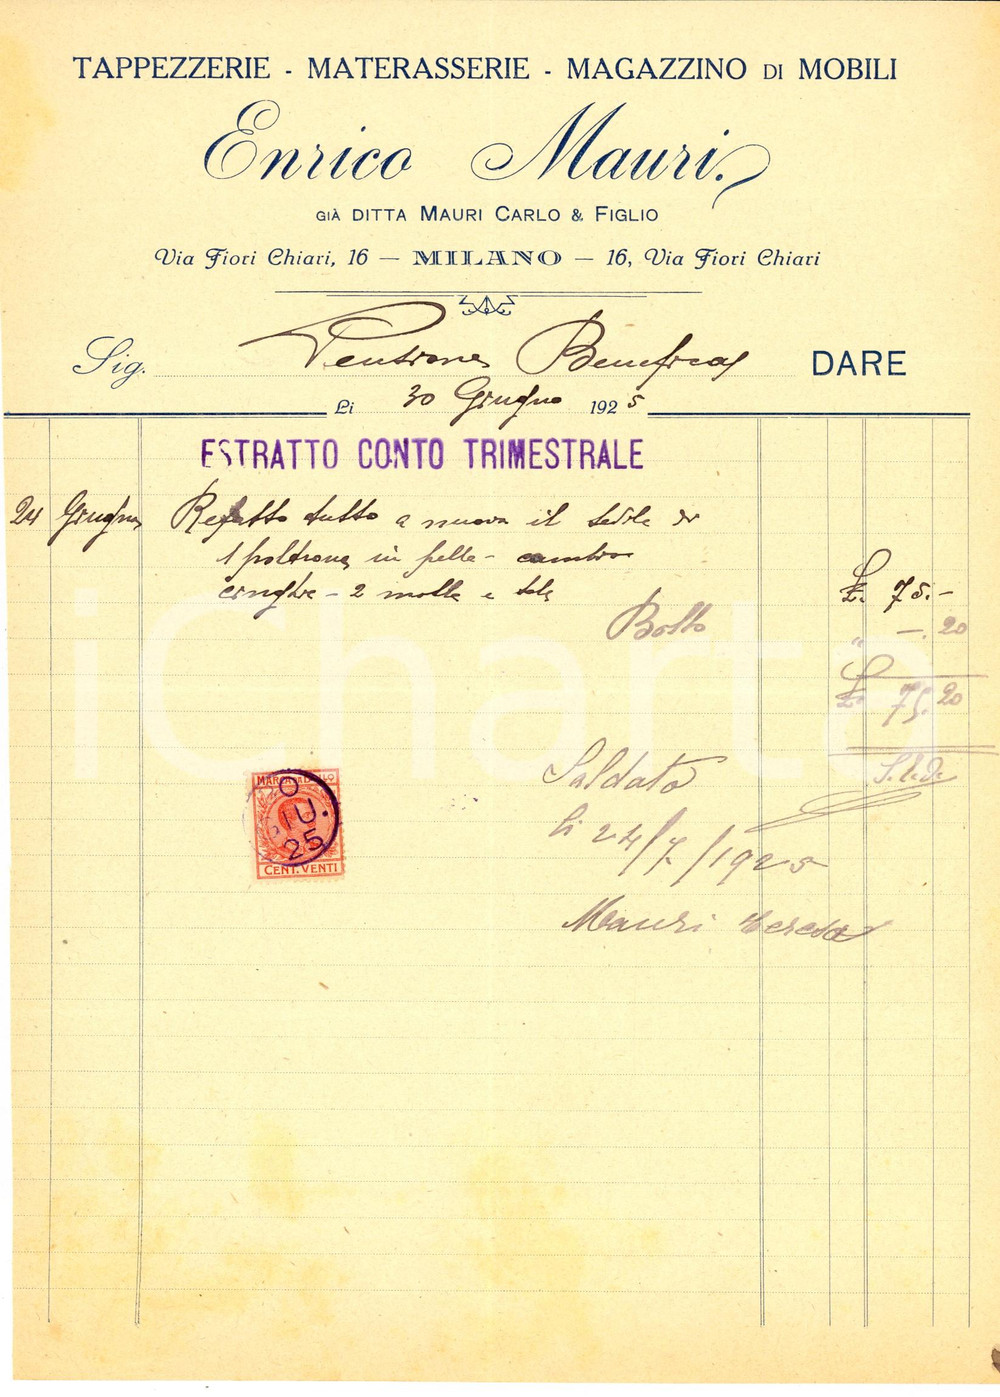 TAPPEZZERIE - MATERASSERIE - MAGAZZINO DI MOBILI
Enrico Mauri.
GIÀ DITTA MAURI CARLO & FIGLIO
Via Fiori Chiari, 16 — MILANO — 16, Via Fiori Chiari
Sig. Pensione Benefica DARE
Li 30 Giugno 1925
ESTRATTO CONTO TRIMESTRALE
24 Giugno Rifatto tutto a nuovo il sedile di
1 poltrona in pelle - cambio
cinghie - 2 molle e tela £. 75.-
Bollo " -.20
£. 75.20
S.E.&O.
MARCA DA BOLLO
0
GIU.
25
CENT. VENTI
Saldato
li 24/7/1925
Mauri Teresa
iCharta